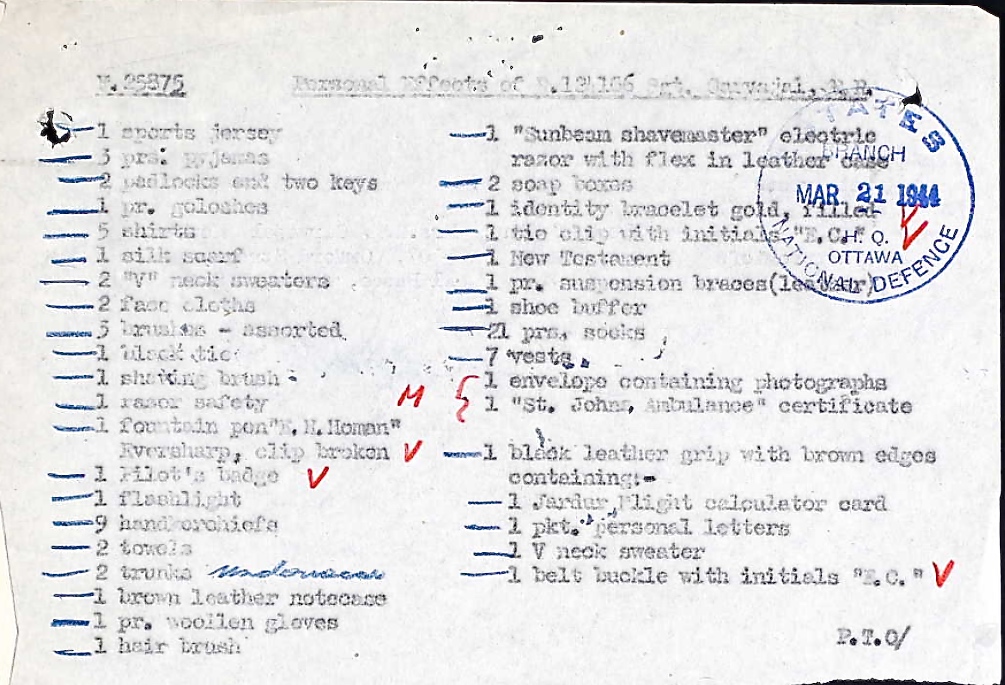 P.25875 Personal Effects of R.124106 Sgt. Carvajal, R.R.
1 sports jersey
3 prs. pyjamas
2 padlocks and two keys
1 pr. goloshes
5 shirts
1 silk scarf
2 "V" neck sweaters
2 face cloths
5 brushes - assorted
1 black tie
1 shaving brush
1 razor safety
1 fountain pen "E.H.Homan"
Eversharp, clip broken
1 Pilot's badge
1 flashlight
9 handkerchiefs
2 towels
2 trunks underwear
1 brown leather notecase
1 pr. woollen gloves
1 hair brush
M
1 "Sunbeam shavemaster" electric
razor with flex in leather case
2 soap boxes
1 identity bracelet gold, filled
1 tie clip with initials "E.C."
1 New Testament
1 pr. suspension braces(leather)
1 shoe buffer
21 prs. socks
7 vests.
1 envelope containing photographs
1 "St. Johns, Ambulance" certificate
1 black leather grip with brown edges
containing:-
1 Jardur Flight calculator card
1 pkt. personal letters
1 V neck sweater
1 belt buckle with initials "E.C."
P.T.O/
BRANCH
MAR 21 1944
H. Q.
OTTAWA
NATIONAL DEFENCE